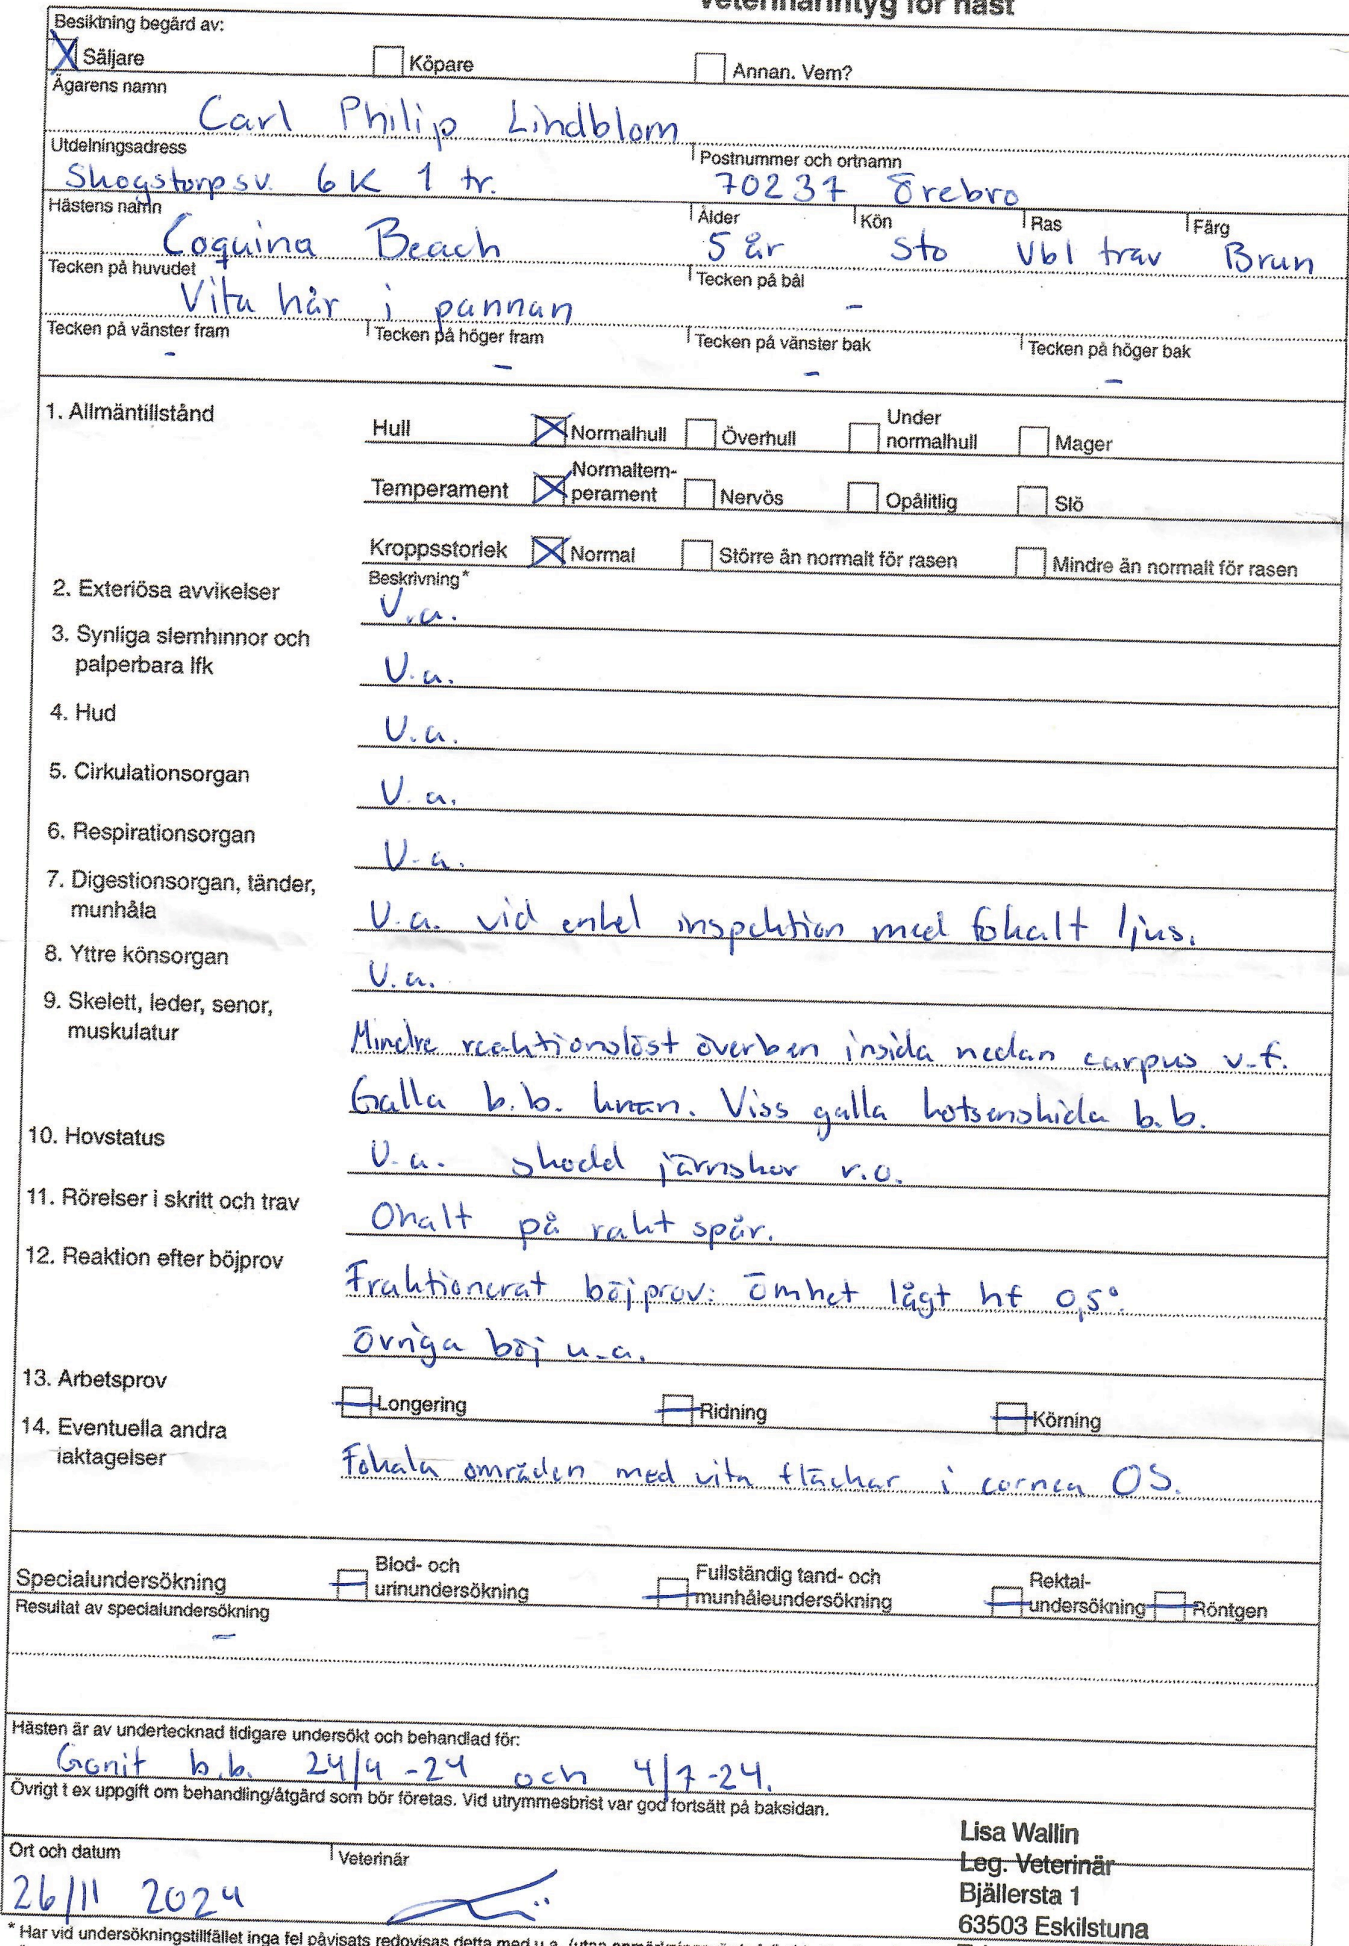 Veterinärintyg för häst
Besiktning begärd av:
Säljare Köpare Annan. Vem?
Ägarens namn
Carl Philip Lindblom
Utdelningsadress Postnummer och ortnamn
Skogstorpsv. 6K 1 tr. 70237 Örebro
Hästens namn Ålder Kön Ras Färg
Coquina Beach 5 år Sto Vbl trav Brun
Tecken på huvudet Tecken på bål
Vita hår i pannan -
Tecken på vänster fram Tecken på höger fram Tecken på vänster bak Tecken på höger bak
- - - -
1. Allmäntillstånd
Hull Normalhull Överhull Under normalhull Mager
Temperament Normaltem-perament Nervös Opålitlig Slö
Kroppsstorlek Normal Större än normalt för rasen Mindre än normalt för rasen
Beskrivning*
2. Exteriösa avvikelser U.a.
3. Synliga slemhinnor och
palperbara lfk U.a.
4. Hud U.a.
5. Cirkulationsorgan U.a.
6. Respirationsorgan U.a.
7. Digestionsorgan, tänder,
munhåla U.a. vid enkel inspektion med fokalt ljus.
8. Yttre könsorgan U.a.
9. Skelett, leder, senor,
muskulatur Mindre reaktionslöst överben insida nedan carpus v.f.
Galla b.b. knän. Viss galla hotsenskida b.b.
10. Hovstatus U.a. skodd järnskor r.o.
11. Rörelser i skritt och trav Ohalt på rakt spår.
12. Reaktion efter böjprov Fraktionerat böjprov: Ömhet lågt hf 0,5°.
Övriga böj u.a.
13. Arbetsprov Longering Ridning Körning
14. Eventuella andra
iaktagelser Fokala områden med vita fläckar i cornea OS.
Specialundersökning Blod- och urinundersökning Fullständig tand- och munhåleundersökning Rektal-undersökning Röntgen
Resultat av specialundersökning
-
Hästen är av undertecknad tidigare undersökt och behandlad för:
Gonit b.b. 24/4 -24 och 4/7-24.
Övrigt t ex uppgift om behandling/åtgärd som bör företas. Vid utrymmesbrist var god fortsätt på baksidan.
Ort och datum Veterinär
26/11 2024
Lisa Wallin
Leg. Veterinär
Bjällersta 1
63503 Eskilstuna
* Har vid undersökningstillfället inga fel påvisats redovisas detta med u.a. (utan